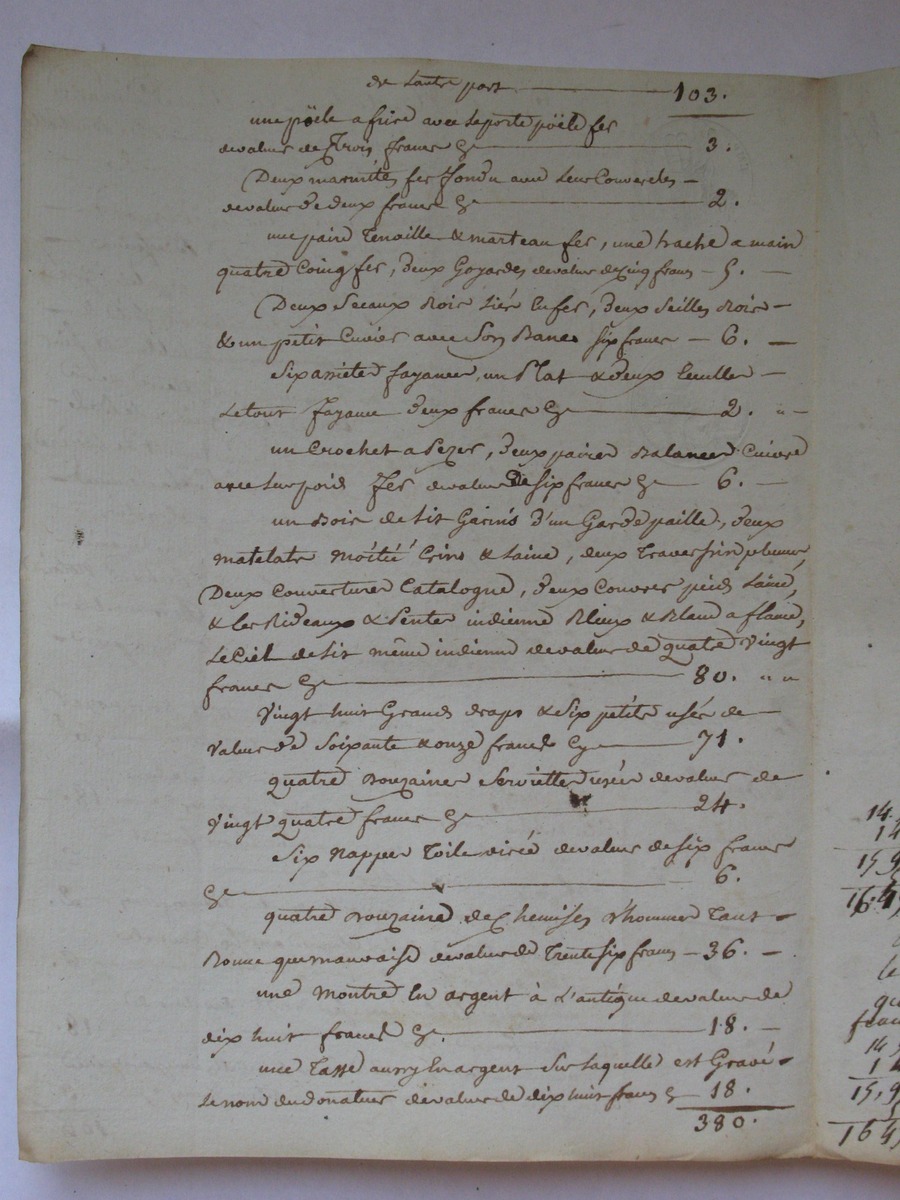 de L'autre part 103.
une pöele a frire avec Le porte pöele fer
de valeur de Trois francs Cy 3.
Deux marmites fer fondu avec Leur Couvercles
de valeur de deux francs Cy 2.
une paire Tenaille & marteau fer, une hache a main
quatre Coing fer, deux Goyardes de valeur de Cinq francs 5.
Deux Seaux Bois Liés En fer, deux Seilles Bois
& un petit Cuvier avec Son Banc Six francs 6.
Six assietes fayances, un Plat & deux Ecuelles
Le tout fayance deux francs Cy 2. "
un Crochet a Pezer, deux paires Balances Cuivre
avec Leur poids fer de valeur de Six francs Cy 6.
un Bois de Lit Garnis d'un Garde paille, deux
matelats Moitié Crins & Laine, deux Traversins plumes,
Deux Couvertures Catalogne, deux Couvres pieds Laine,
& Les Rideaux & Pentes indienne Bleux & Blanc a flame,
Le Ciel de Lit même indienne de valeur de quatre Vingt
francs Cy 80. " "
Vingt huit Grands draps & Six petits usés de
Valeur de Soixante & onze francs Cy 71.
quatre Douzaines Serviettes usées de valeur de
Vingt quatre francs Cy 24.
Six Nappes Toile de valeur de Six francs
Cy 6.
quatre Douzaine de Chemises d'hommes Tant
Bonne que mauvaise de valeur de Trente Six francs 36.
une Montre En argent à L'antique de valeur de
dix huit francs Cy. 18.
une Tasse aussy En argent Sur Laquelle est Gravé
Le nom du donateur de valeur de dix huit francs Cy 18.
380.
14.
14
15,9
16.4
le
qu
franc
14,
14
15,9
164